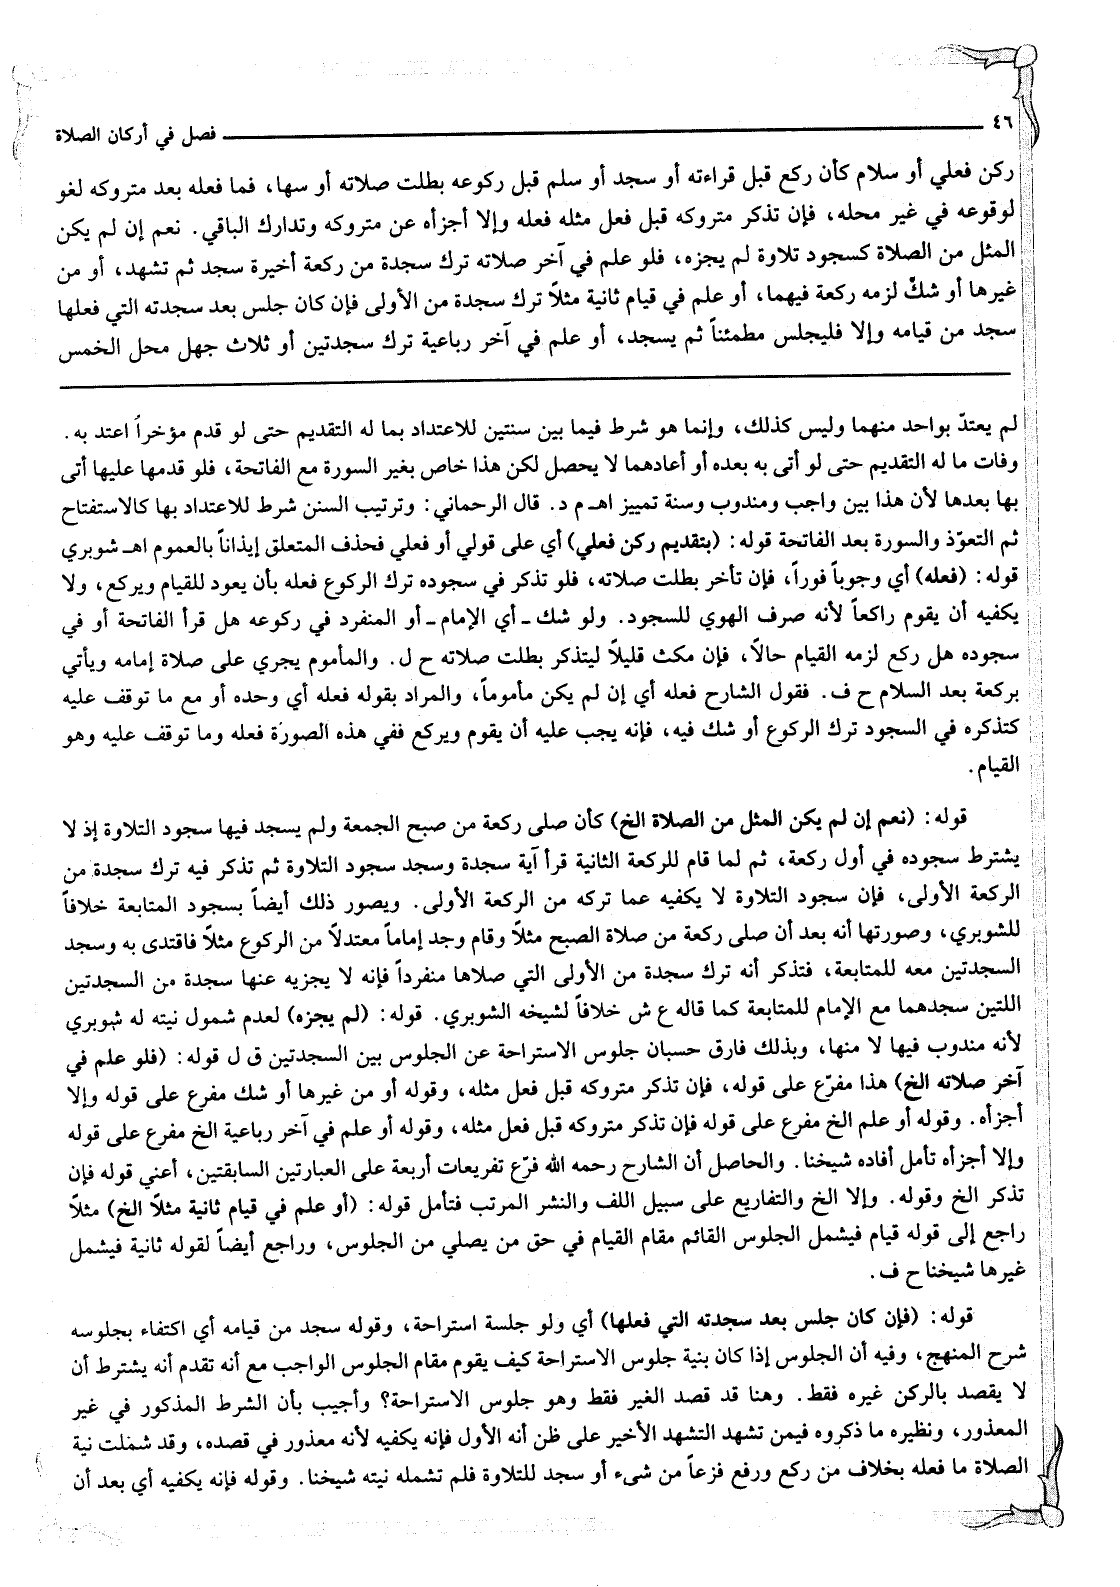 ٤٦ فصل في أركان الصلاة
ركن فعلي أو سلام كأن ركع قبل قراءته أو سجد أو سلم قبل ركوعه بطلت صلاته أو سها، فما فعله بعد متروكه لغو
لوقوعه في غير محله، فإن تذكر متروكه قبل فعل مثله فعله وإلا أجزأه عن متروكه وتدارك الباقي. نعم إن لم يكن
المثل من الصلاة كسجود تلاوة لم يجزه، فلو علم في آخر صلاته ترك سجدة من ركعة أخيرة سجد ثم تشهد، أو من
غيرها أو شكّ لزمه ركعة فيهما، أو علم في قيام ثانية مثلاً ترك سجدة من الأولى فإن كان جلس بعد سجدته التي فعلها
سجد من قيامه وإلا فليجلس مطمئناً ثم يسجد، أو علم في آخر رباعية ترك سجدتين أو ثلاث جهل محل الخمس
لم يعتدّ بواحد منهما وليس كذلك، وإنما هو شرط فيما بين سنتين للاعتداد بما له التقديم حتى لو قدم مؤخراً اعتد به.
وفات ما له التقديم حتى لو أتى به بعده أو أعادهما لا يحصل لكن هذا خاص بغير السورة مع الفاتحة، فلو قدمها عليها أتى
بها بعدها لأن هذا بين واجب ومندوب وسنة تمييز اهـ م د. قال الرحماني: وترتيب السنن شرط للاعتداد بها كالاستفتاح
ثم التعوّذ والسورة بعد الفاتحة قوله: (بتقديم ركن فعلي) أي على قولي أو فعلي فحذف المتعلق إيذاناً بالعموم اهـ شوبري
قوله: (فعله) أي وجوباً فوراً، فإن تأخر بطلت صلاته، فلو تذكر في سجوده ترك الركوع فعله بأن يعود للقيام ويركع، ولا
يكفيه أن يقوم راكعاً لأنه صرف الهوي للسجود. ولو شك ـ أي الإمام ـ أو المنفرد في ركوعه هل قرأ الفاتحة أو في
سجوده هل ركع لزمه القيام حالاً، فإن مكث قليلاً ليتذكر بطلت صلاته ح ل. والمأموم يجري على صلاة إمامه ويأتي
بركعة بعد السلام ح ف. فقول الشارح فعله أي إن لم يكن مأموماً، والمراد بقوله فعله أي وحده أو مع ما توقف عليه
كتذكره في السجود ترك الركوع أو شك فيه، فإنه يجب عليه أن يقوم ويركع ففي هذه الصورة فعله وما توقف عليه وهو
القيام.
قوله: (نعم إن لم يكن المثل من الصلاة الخ) كأن صلى ركعة من صبح الجمعة ولم يسجد فيها سجود التلاوة إذ لا
يشترط سجوده في أول ركعة، ثم لما قام للركعة الثانية قرأ آية سجدة وسجد سجود التلاوة ثم تذكر فيه ترك سجدة من
الركعة الأولى، فإن سجود التلاوة لا يكفيه عما تركه من الركعة الأولى. ويصور ذلك أيضاً بسجود المتابعة خلافاً
للشوبري، وصورتها أنه بعد أن صلى ركعة من صلاة الصبح مثلاً وقام وجد إماماً معتدلاً من الركوع مثلاً فاقتدى به وسجد
السجدتين معه للمتابعة، فتذكر أنه ترك سجدة من الأولى التي صلاها منفرداً فإنه لا يجزيه عنها سجدة من السجدتين
اللتين سجدهما مع الإمام للمتابعة كما قاله ع ش خلافاً لشيخه الشوبري. قوله: (لم يجزه) لعدم شمول نيته له شوبري
لأنه مندوب فيها لا منها، وبذلك فارق حسبان جلوس الاستراحة عن الجلوس بين السجدتين ق ل قوله: (فلو علم في
آخر صلاته الخ) هذا مفرّع على قوله، فإن تذكر متروكه قبل فعل مثله، وقوله أو من غيرها أو شك مفرع على قوله وإلا
أجزأه. وقوله أو علم الخ مفرع على قوله فإن تذكر متروكه قبل فعل مثله، وقوله أو علم في آخر رباعية الخ مفرع على قوله
وإلا أجزأه تأمل أفاده شيخنا. والحاصل أن الشارح رحمه الله فرّع تفريعات أربعة على العبارتين السابقتين، أعني قوله فإن
تذكر الخ وقوله. وإلا الخ والتفاريع على سبيل اللف والنشر المرتب فتأمل قوله: (أو علم في قيام ثانية مثلاً الخ) مثلاً
راجع إلى قوله قيام فيشمل الجلوس القائم مقام القيام في حق من يصلي من الجلوس، وراجع أيضاً لقوله ثانية فيشمل
غيرها شيخنا ح ف.
قوله: (فإن كان جلس بعد سجدته التي فعلها) أي ولو جلسة استراحة، وقوله سجد من قيامه أي اكتفاء بجلوسه
شرح المنهج، وفيه أن الجلوس إذا كان بنية جلوس الاستراحة كيف يقوم مقام الجلوس الواجب مع أنه تقدم أنه يشترط أن
لا يقصد بالركن غيره فقط. وهنا قد قصد الغير فقط وهو جلوس الاستراحة؟ وأجيب بأن الشرط المذكور في غير
المعذور، ونظيره ما ذكروه فيمن تشهد التشهد الأخير على ظن أنه الأول فإنه يكفيه لأنه معذور في قصده، وقد شملت نية
الصلاة ما فعله بخلاف من ركع ورفع فزعاً من شىء أو سجد للتلاوة فلم تشمله نيته شيخنا. وقوله فإنه يكفيه أي بعد أن